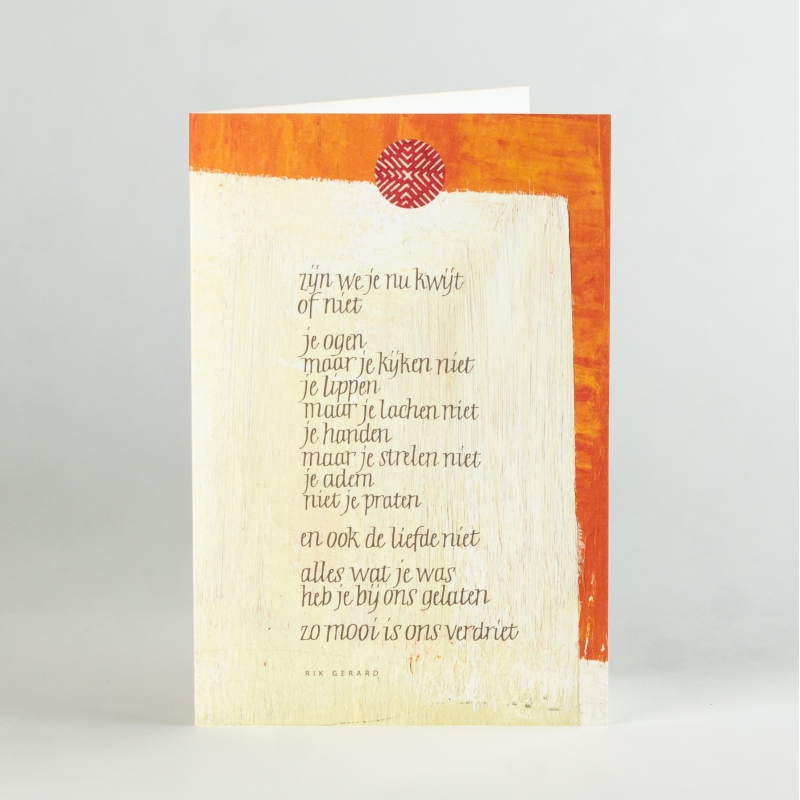 zijn we je nu kwijt
of niet
je ogen
maar je kijken niet
je lippen
maar je lachen niet
je handen
maar je strelen niet
je adem
niet je praten
en ook de liefde niet
alles wat je was
heb je bij ons gelaten
zo mooi is ons verdriet
RIK GERARD